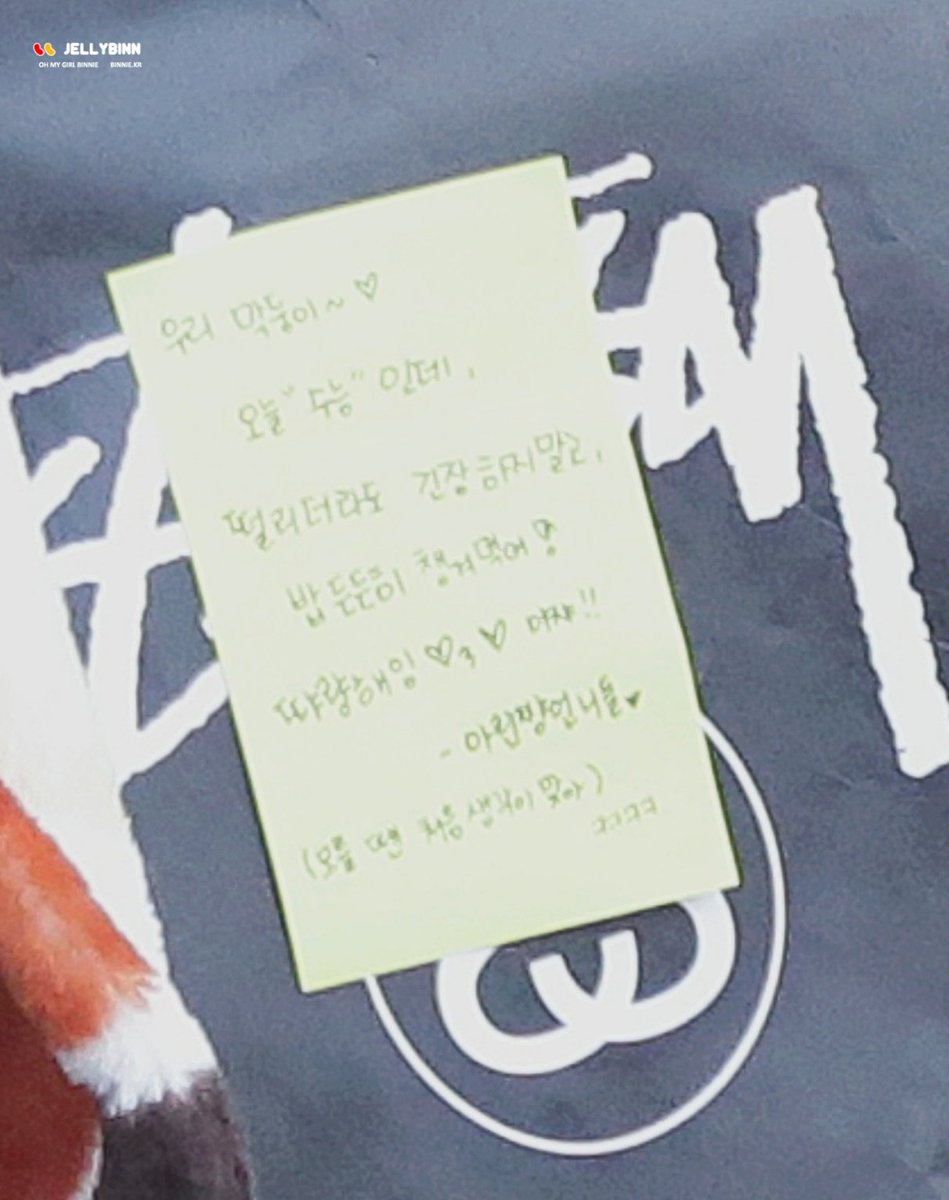 JELLYBINN
OH MY GIRL BINNIE BINNIE.KR
우리 막둥이~♡
오늘 "수능" 인데,
떨리더라도 긴장하지말고,
밥 든든히 챙겨먹어
따랑해잉 ♡3♡ 아쟈!!
- 아린짱언니들♥
(모를 땐 처음 생각이 맞아)
ㅋㅋㅋㅋ